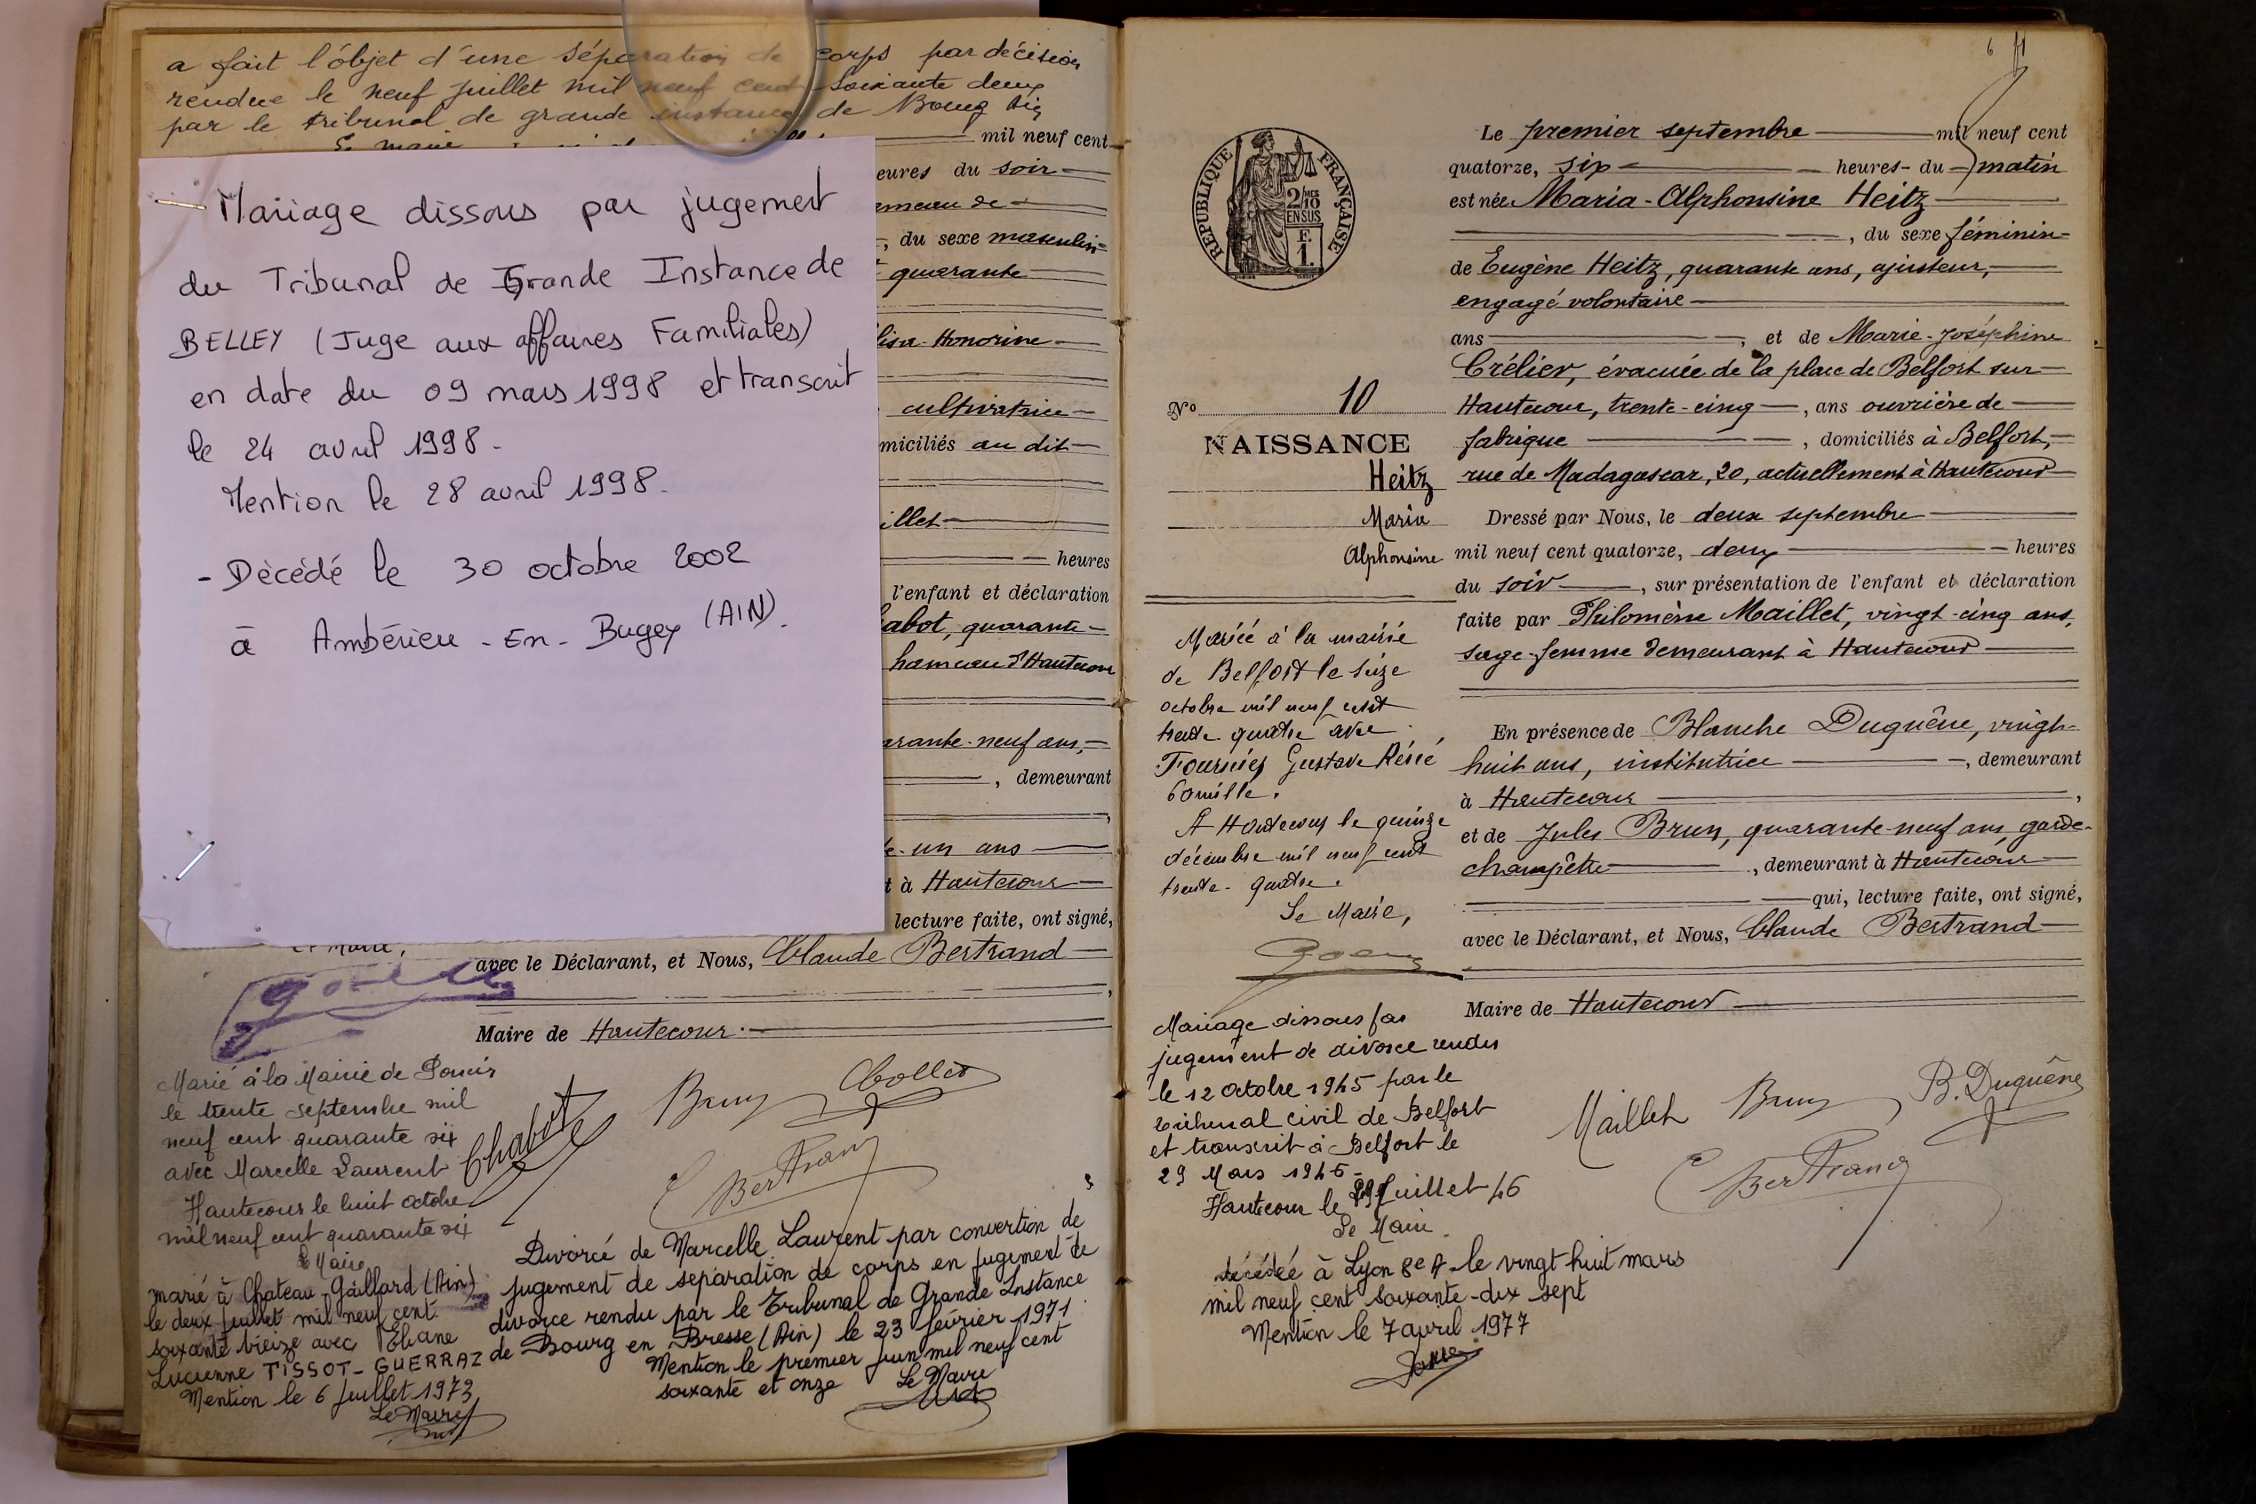 a fait l'objet d'une séparation de corps par décision
rendue le neuf juillet mil neuf cent soixante deux
par le tribunal de grande instance de Bourg
mil neuf cent
- Mariage dissous par jugement
du Tribunal de Grande Instance de
BELLEY (Juge aux affaires Familiales)
en date du 09 mars 1998 et transcrit
le 24 avril 1998.
Mention le 28 avril 1998.
- Décédé le 30 octobre 2002
à Ambérieu-En-Bugey (AIN).
eures du soir
ameau de
, du sexe masculin
quarante
lisa-Honorine
cultivatrice
miciliés au dit
illet
heures
l'enfant et déclaration
abot, quarante-
hameau d'Hautecour
arante-neuf ans,
, demeurant
e-un ans
t à Hautecour
lecture faite, ont signé,
avec le Déclarant, et Nous, Claude Bertrand
Maire de Hautecour.
Marié à la Mairie de Poncin
le trente septembre mil
neuf cent quarante six
avec Marcelle Laurent
Hautecour le huit octobre
mil neuf cent quarante six
Le Maire
marié à Chateau-Gaillard (Ain)
le deux juillet mil neuf cent
soixante treize avec Eliane
Lucienne TISSOT-GUERRAZ
Mention le 6 juillet 1973
Le Maire
Chabot
Brun
Collet
C Bertrand
Divorcé de Marcelle Laurent par convertion de
jugement de séparation de corps en jugement de
divorce rendu par le Tribunal de Grande Instance
de Bourg en Bresse (Ain) le 23 février 1971.
Mention le premier juin mil neuf cent
soixante et onze
Le Maire
6
RÉPUBLIQUE FRANÇAISE
2/10
EN SUS
F.
1.
No 10
NAISSANCE
Heitz
Maria
Alphonsine
Mariée à la mairie
de Belfort le seize
octobre mil neuf cent
trente quatre avec
Fournier Gustave René
Camille.
A Hautecour le quinze
décembre mil neuf cent
trente-quatre.
Le Maire,
Mariage dissous par
jugement de divorce rendu
le 12 octobre 1945 par le
tribunal civil de Belfort
et transcrit à Belfort le
29 Mars 1946-
Hautecour le juillet 46
Le Maire
décédée à Lyon 8e A. le vingt huit mars
mil neuf cent soixante-dix sept
Mention le 7 avril 1977
Le premier septembre mil neuf cent
quatorze, six heures du matin
est née Maria-Alphonsine Heitz
, du sexe féminin
de Eugène Heitz, quarante ans, ajusteur,
engagé volontaire
ans , et de Marie-Joséphine
Crélier, évacuée de la place de Belfort sur
Hautecour, trente-cinq , ans ouvrière de
fabrique , domiciliés à Belfort,
rue de Madagascar, 20, actuellement à Hautecour
Dressé par Nous, le deux septembre
mil neuf cent quatorze, deux heures
du soir , sur présentation de l'enfant et déclaration
faite par Philomène Maillet, vingt-cinq ans,
sage-femme demeurant à Hautecour
En présence de Blanche Duquêne, vingt-
huit ans, institutrice , demeurant
à Hautecour ,
et de Jules Brun, quarante-neuf ans garde-
champêtre , demeurant à Hautecour
qui, lecture faite, ont signé,
avec le Déclarant, et Nous, Claude Bertrand
Maire de Hautecour
Maillet
Brun
B. Duquêne
C Bertrand